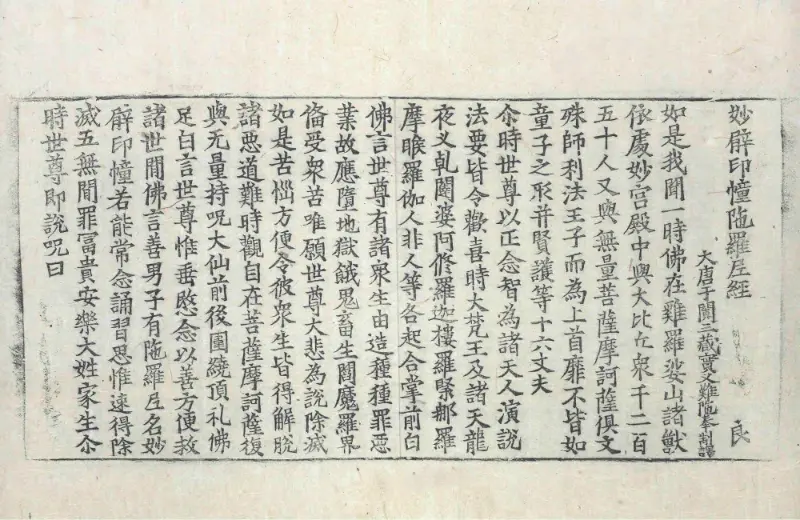 妙臂印幢陁羅尼經 良
大唐于闐三藏實叉難陁奉制譯
如是我聞一時佛在雞羅娑山諸獸
依處妙宮殿中與大比丘衆千二百
五十人又與無量菩薩摩訶薩俱文
殊師利法王子而為上首靡不皆如
童子之形并賢護等十六丈夫
尒時世尊以正念智為諸天人演說
法要皆令歡喜時大梵王及諸天龍
夜叉乹闥婆阿修羅迦樓羅緊那羅
摩睺羅伽人非人等各起合掌前白
佛言世尊有諸衆生由造種種罪惡
業故應墮地獄餓鬼畜生閻魔羅界
俻受衆苦唯願世尊大悲為說除滅
如是苦惱方便令彼衆生皆得解脫
諸惡道難時觀自在菩薩摩訶薩復
與无量持呪大仙前後圍繞頂礼佛
足白言世尊惟垂愍念以善方便救
諸世間佛言善男子有陁羅尼名妙
臂印幢若能常念誦習思惟速得除
滅五無間罪冨貴安樂大姓家生尒
時世尊即說呪曰